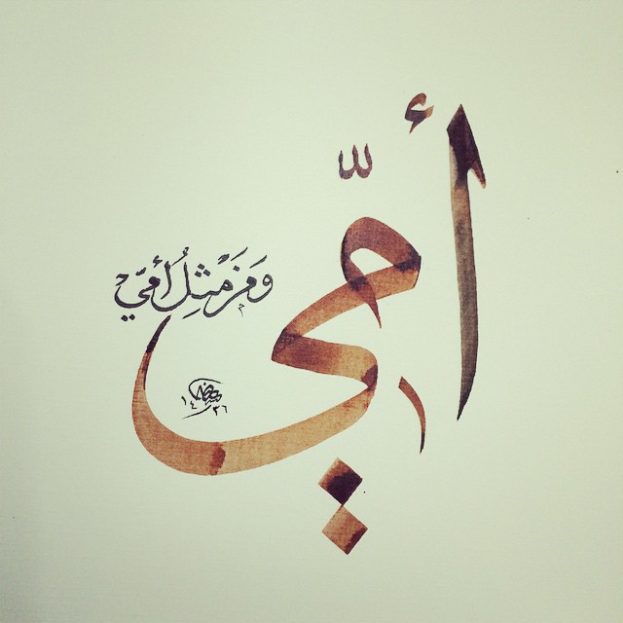 أمّي
وَمَنْ مْثلُ أمّيْ
١٤٣٦